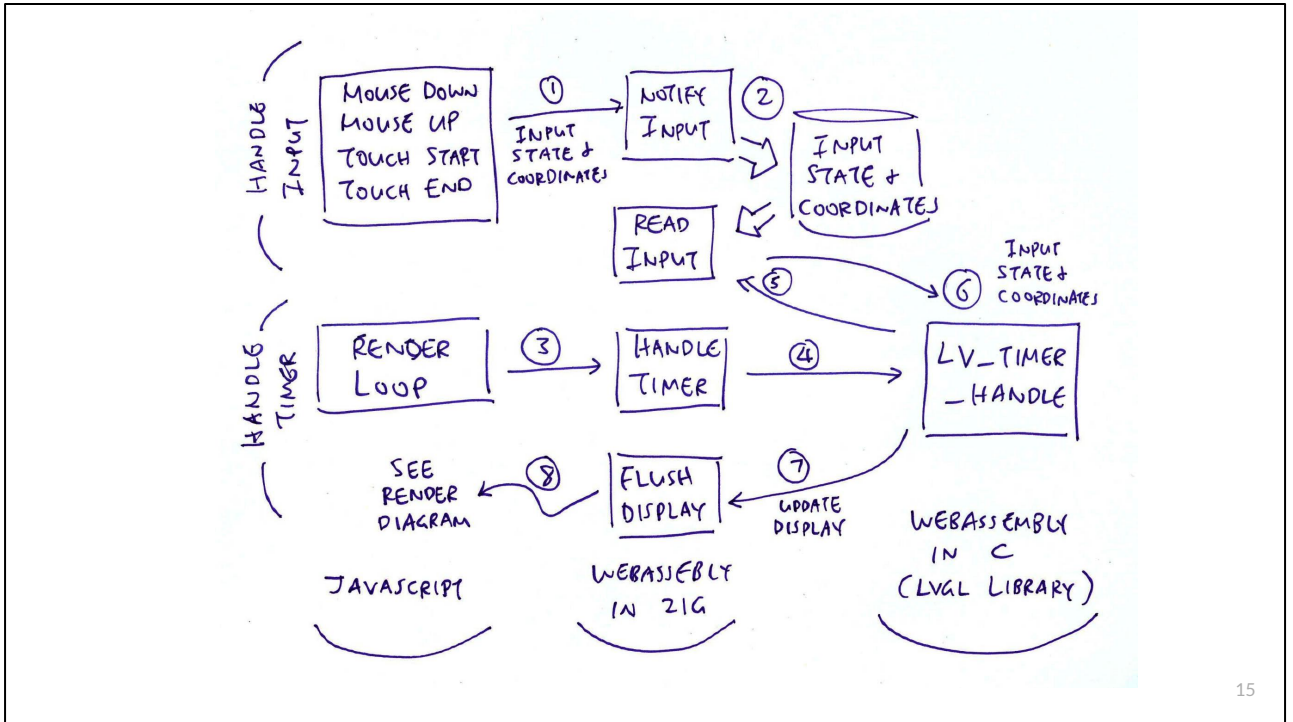 HANDLE
INPUT
MOUSE DOWN
MOUSE UP
TOUCH START
TOUCH END
1
INPUT
STATE &
COORDINATES
NOTIFY
INPUT
2
INPUT
STATE &
COORDINATES
READ
INPUT
5
6
INPUT
STATE &
COORDINATES
HANDLE
TIMER
RENDER
LOOP
3
HANDLE
TIMER
4
LV_TIMER
_HANDLE
SEE
RENDER
DIAGRAM
8
FLUSH
DISPLAY
7
UPDATE
DISPLAY
JAVASCRIPT
WEBASSEBLY
IN ZIG
WEBASSEMBLY
IN C
(LVGL LIBRARY)
15